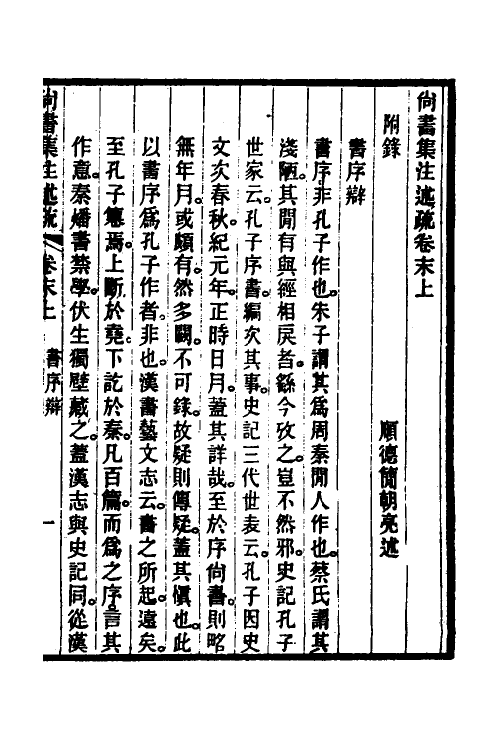 尙書集注述疏卷末上
附錄　順德簡朝亮述
書序辯
書序非孔子作也。朱子謂其爲周秦閒人作也。蔡氏謂其
淺陋。其閒有與經相戾者。繇今攷之。豈不然邪。史記孔子
世家云。孔子序書。編次其事。史記三代世表云。孔子因史
文次春秋。紀元年。正時日月。蓋其詳哉。至於序尙書。則略
無年月。或頗有。然多闕。不可錄。故疑則傳疑。蓋其愼也。此
以書序爲孔子作者。非也。漢書藝文志云。書之所起。遠矣。
至孔子篹焉。上斷於堯。下訖於秦。凡百篇。而爲之序。言其
作意。秦燔書禁學。伏生獨壁藏之。蓋漢志與史記同。從漢
尙書集注述疏 卷末上 書序辯 一